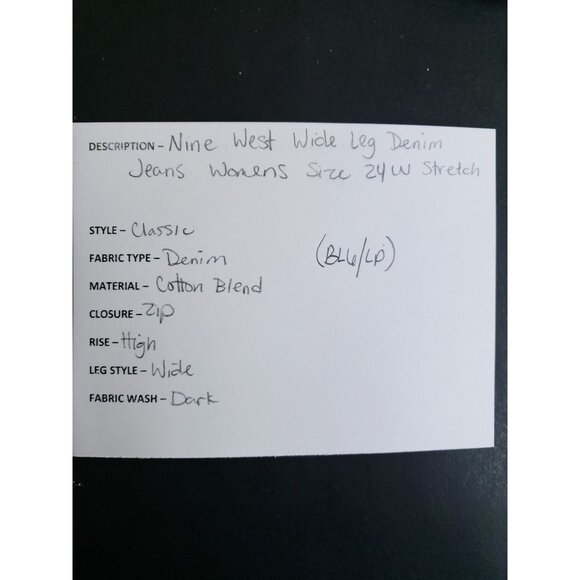 DESCRIPTION - Nine West Wide Leg Denim
Jeans Womens Size 24W Stretch
STYLE - Classic
FABRIC TYPE - Denim
(BL6/LP)
MATERIAL - Cotton Blend
CLOSURE - Zip
RISE - High
LEG STYLE - Wide
FABRIC WASH - Dark